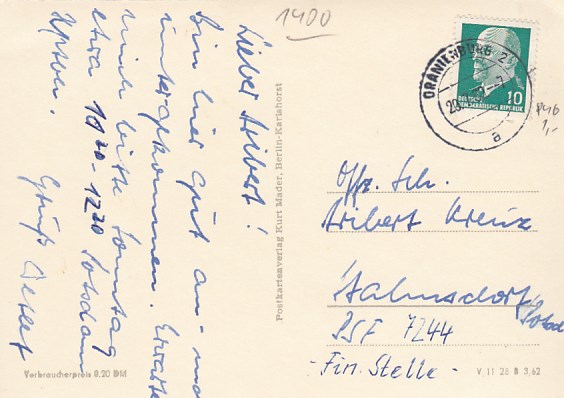 1400
Lieber Aribert!
Bin hier gut an- und
untergekommen. Erwarte
mich bitte Sonntag
etwa 1200-1220 Potsdam
Gruß
Postkartenverlag Kurt Mader, Berlin-Karlshorst
Verbraucherpreis 0.20 DM
ORANIENBURG 2
a
DEUTSCHE
DEMOKRATISCHE REPUBLIK
10
1,-
Offz. Sch.
Aribert Kreuz
Potsd
PSF 7244
- Fin. Stelle -
V 11 28 B 3,62